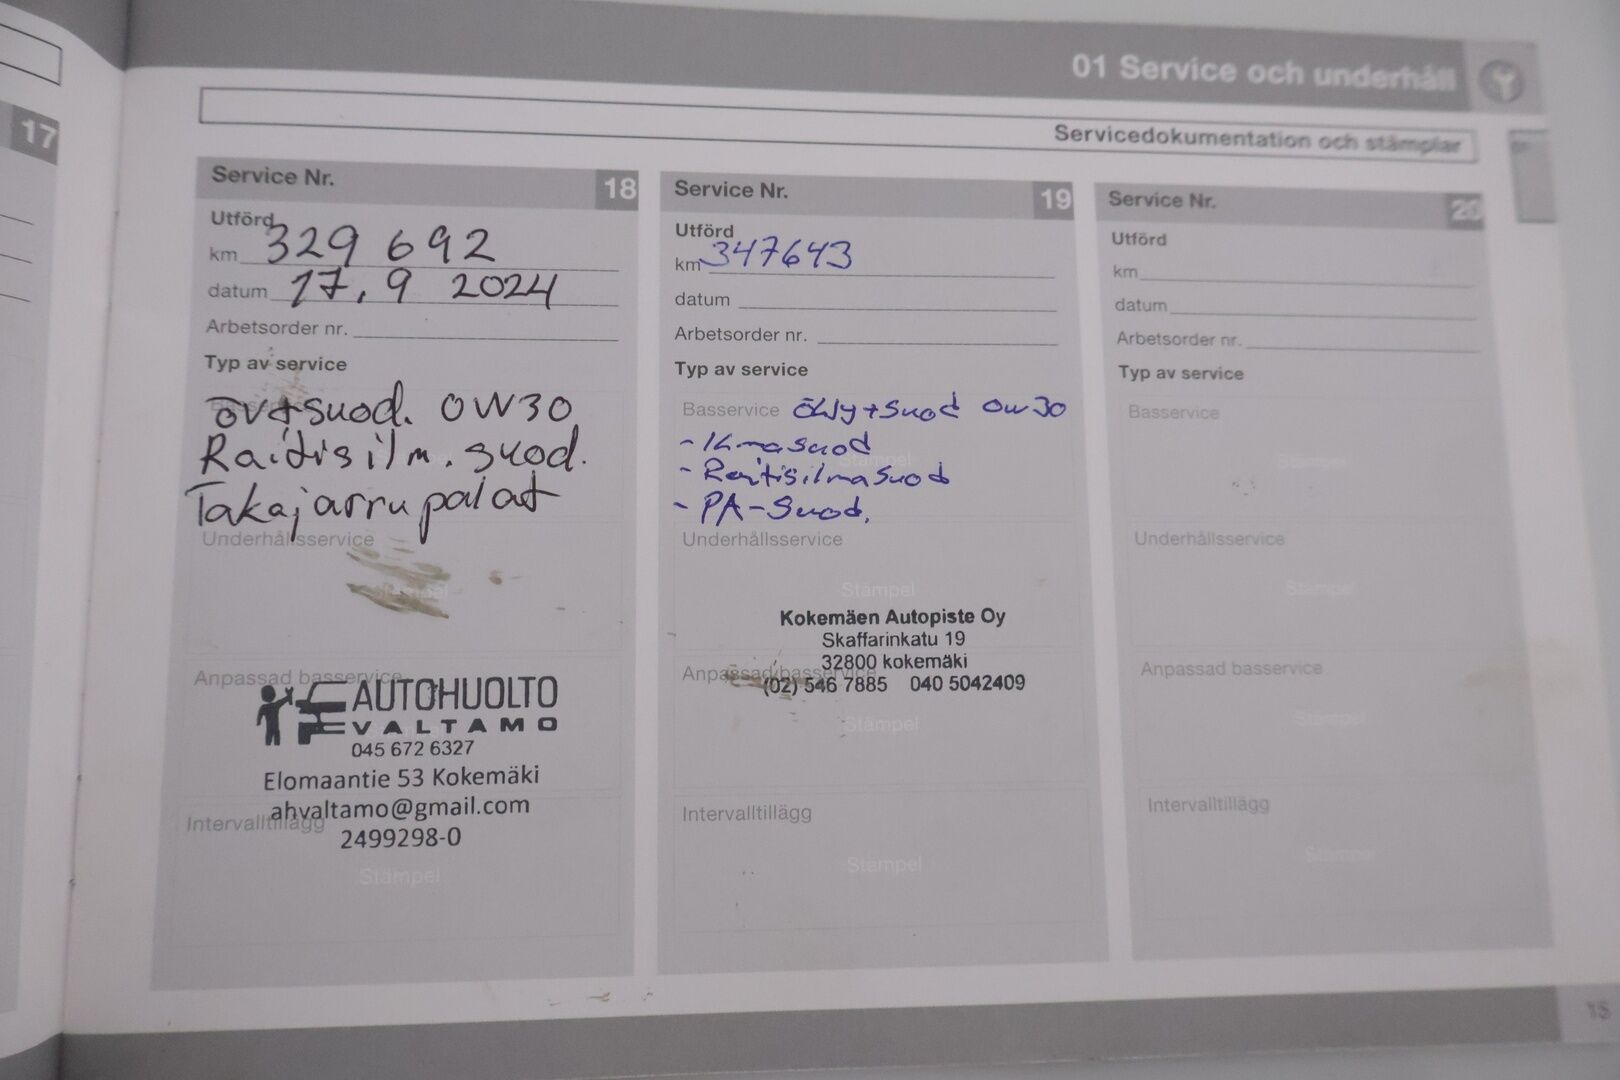 01 Service och underhåll
Servicedokumentation och stämplar
17
Service Nr. 18
Utförd
km 329 692
datum 17.9 2024
Arbetsorder nr.
Typ av service
öv+suod. 0W30
Raitisilm. suod.
Takajarrupalat
Underhållsservice
Stämpel
Anpassad basservice
AUTOHUOLTO
VALTAMO
045 672 6327
Elomaantie 53 Kokemäki
ahvaltamo@gmail.com
Intervalltillägg
2499298-0
Stämpel
Service Nr. 19
Utförd
km 347643
datum
Arbetsorder nr.
Typ av service
Basservice öljy+suod 0w30
- Ilmasuod
- Raitisilmasuod
- PA-Suod.
Stämpel
Underhållsservice
Stämpel
Kokemäen Autopiste Oy
Skaffarinkatu 19
32800 kokemäki
Anpassad basservice
(02) 546 7885 040 5042409
Stämpel
Intervalltillägg
Stämpel
Service Nr. 20
Utförd
km
datum
Arbetsorder nr.
Typ av service
Basservice
Stämpel
Underhållsservice
Stämpel
Anpassad basservice
Stämpel
Intervalltillägg
Stämpel
15